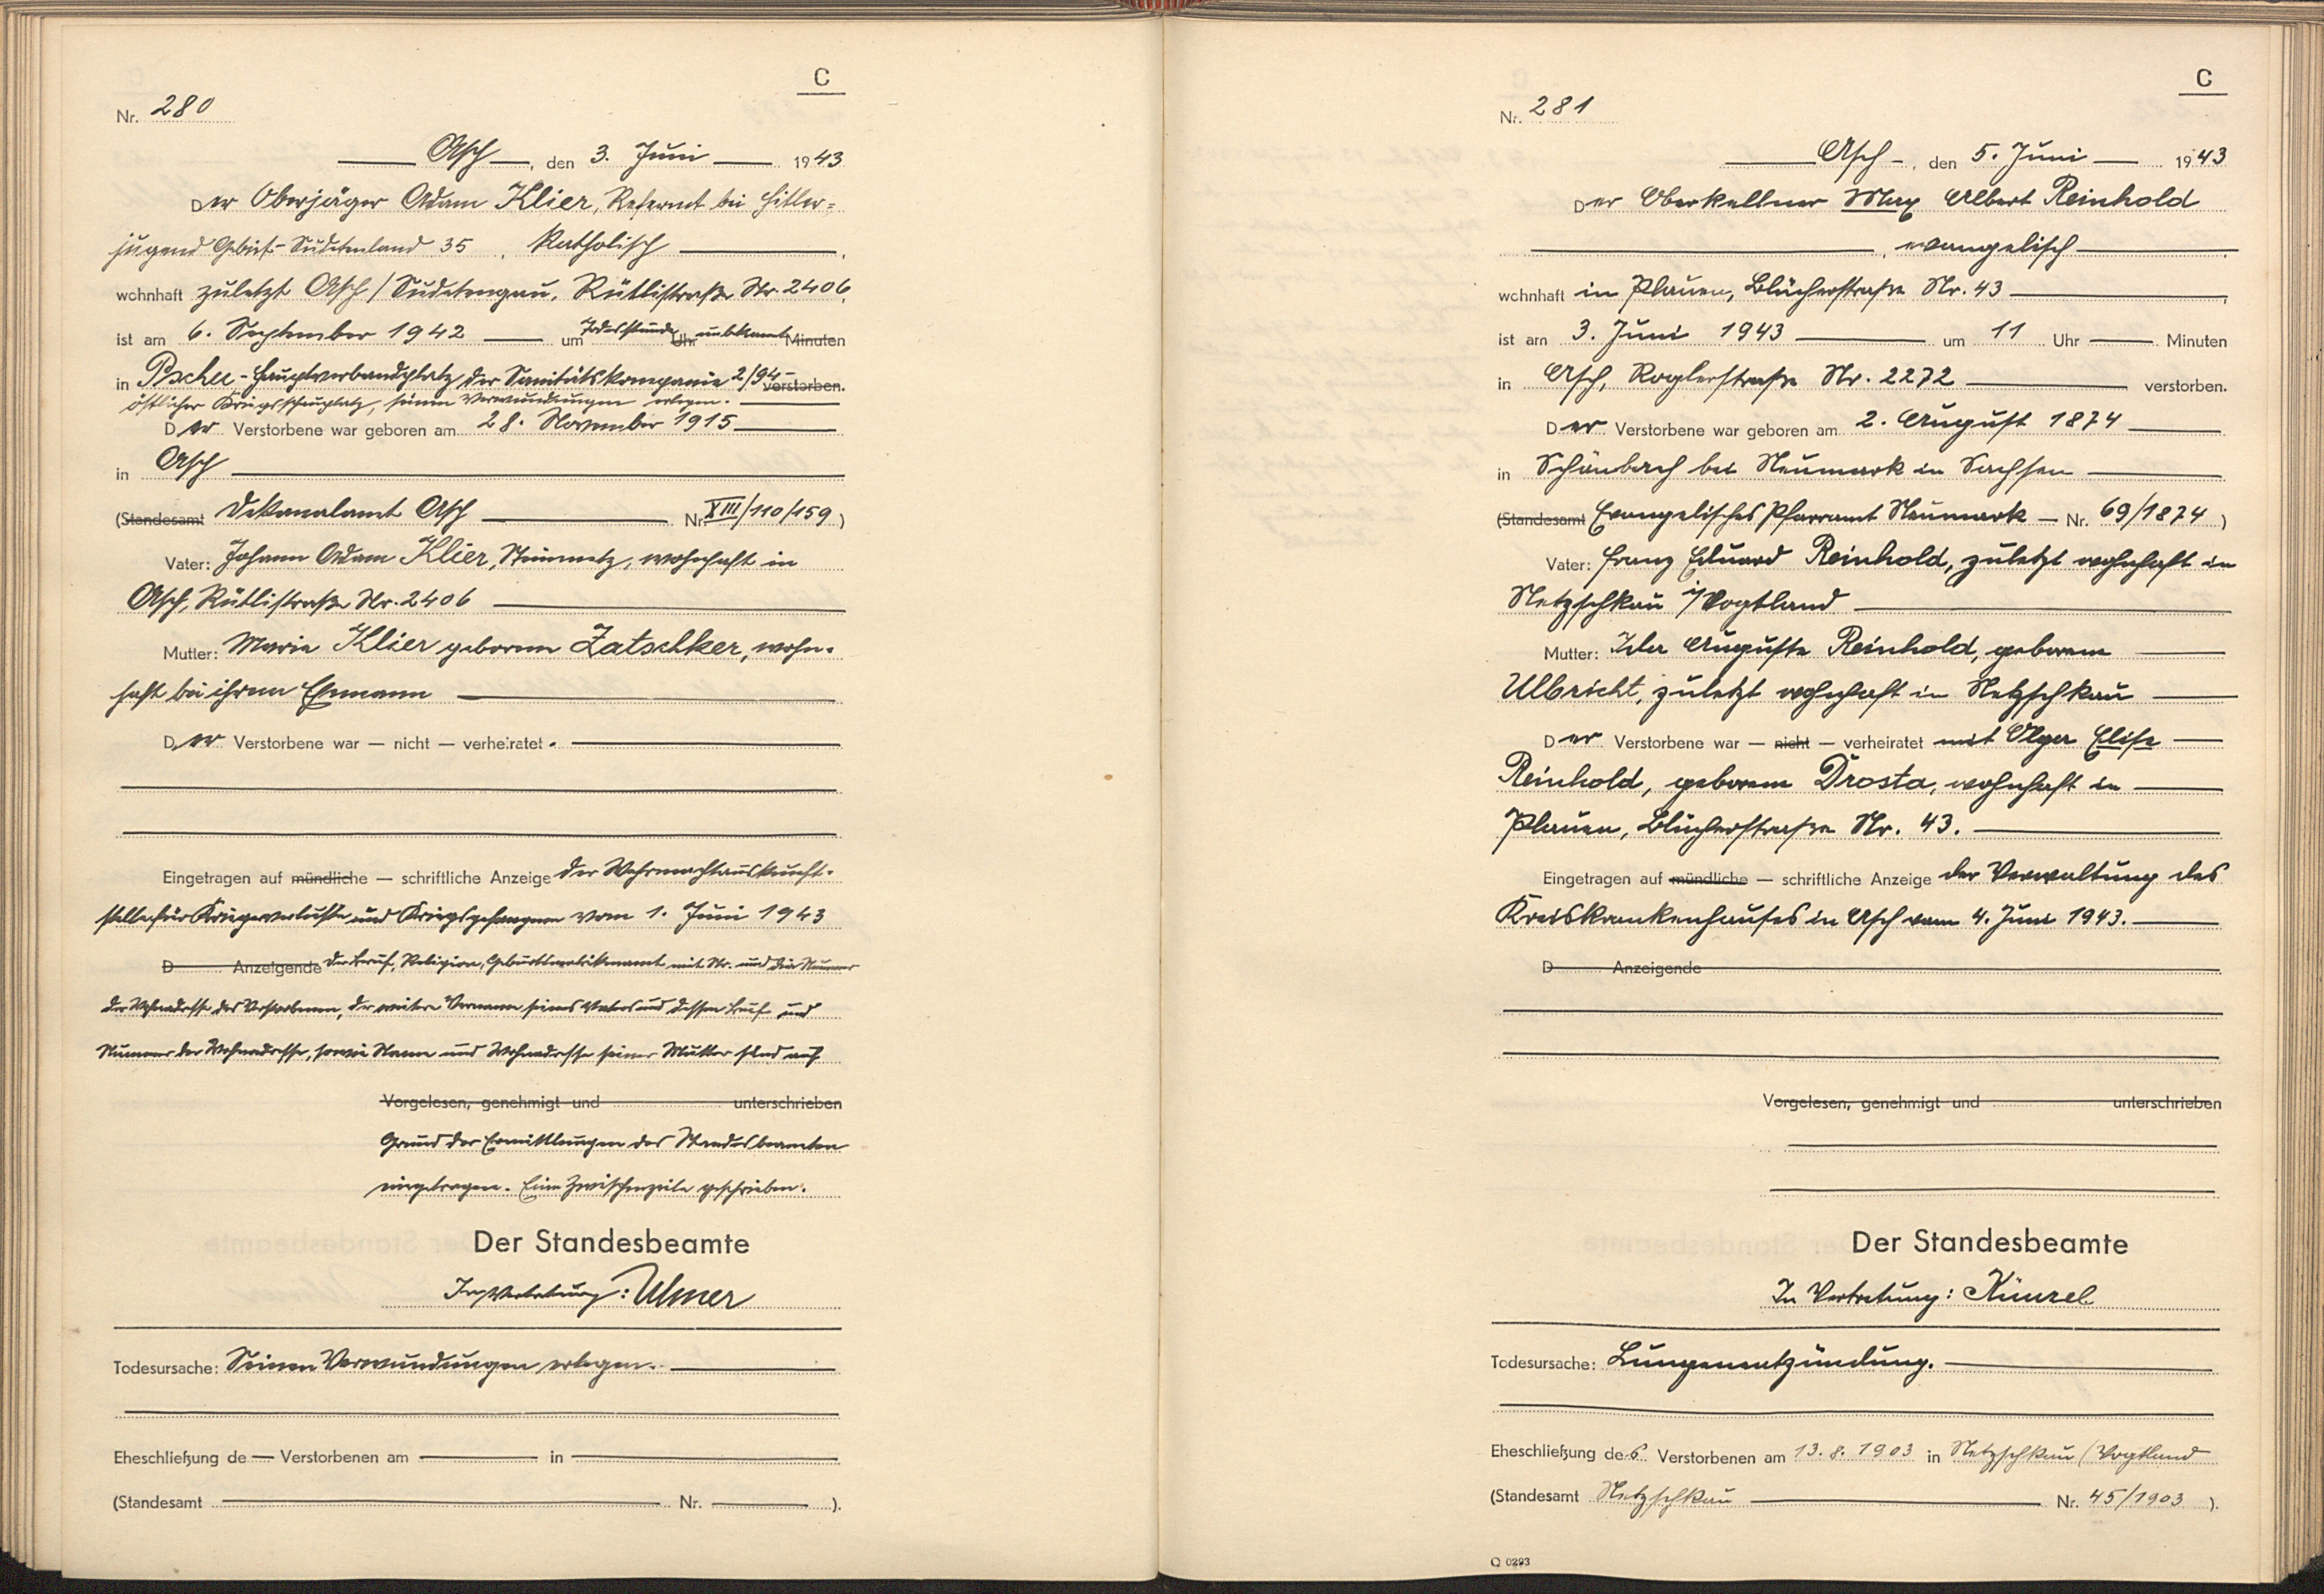 C
Nr. 280
Asch, den 3. Juni 1943
Der Oberjäger Adam Klier, Referent bei Hitler=
jugend Gebiet Sudetenland 35, katholisch,
wohnhaft zuletzt Asch / Sudetengau, Rütlistraße Nr. 2406,
ist am 6. September 1942 um Todesstunde Uhr unbekannt Minuten
in - Hauptverbandplatz der Sanitätskompanie 2/94 - verstorben.
östlicher Kriegsschauplatz, seinen Verwundungen erlegen.
Der Verstorbene war geboren am 28. November 1915
in Asch
(Standesamt Dekanalamt Asch Nr. XIII/110/159)
Vater: Johann Adam Klier, Steinmetz, wohnhaft in
Asch, Rütlistraße Nr. 2406
Mutter: Marie Klier geborene Zatschker, wohn-
haft bei ihrem Ehemann
Der Verstorbene war — nicht — verheiratet.
Eingetragen auf mündliche — schriftliche Anzeige der Wehrmachtauskunft-
stelle für Kriegerverluste und Kriegsgefangene vom 1. Juni 1943
D Anzeigende Der Beruf, Religion, Geburtsmatrikenamt mit Nr. und die Nummer
der Wohnadresse des Verstorbenen, der weitere Vorname seines Vaters und dessen Beruf und
Nummer der Wohnadresse, sowie Name und Wohnadresse seiner Mutter sind auf
Vorgelesen, genehmigt und unterschrieben
Grund der Ermittlungen des Standesbeamten
eingetragen. Eine Zwischenzeile geschrieben.
Der Standesbeamte
In Vertretung: Ulmer
Todesursache: Seinen Verwundungen erlegen.
Eheschließung de Verstorbenen am in
(Standesamt Nr. ).
C
Nr. 281
Asch, den 5. Juni 1943
Der Oberkellner Max Albert Reinhold
, evangelisch,
wohnhaft in Plauen, Blücherstraße Nr. 43,
ist am 3. Juni 1943 um 11 Uhr Minuten
in Asch, Roglerstraße Nr. 2272 verstorben.
Der Verstorbene war geboren am 2. August 1874
in Schönbach bei Neumark in Sachsen
(Standesamt Evangelisches Pfarramt Neumark — Nr. 69/1874)
Vater: Franz Eduard Reinhold, zuletzt wohnhaft in
Netzschkau i/Vogtland
Mutter: Ida Auguste Reinhold, geborene
Ulbricht, zuletzt wohnhaft in Netzschkau
Der Verstorbene war — nicht — verheiratet mit Olga Elise
Reinhold, geborene Drosta, wohnhaft in
Plauen, Blücherstraße Nr. 43.
Eingetragen auf mündliche — schriftliche Anzeige der Verwaltung des
Kreiskrankenhauses in Asch vom 4. Juni 1943.
D Anzeigende
Vorgelesen, genehmigt und unterschrieben
Der Standesbeamte
In Vertretung: Künzel
Todesursache: Lungenentzündung.
Eheschließung des Verstorbenen am 13.8.1903 in Netzschkau/Vogtland
(Standesamt Netzschkau Nr. 45/1903).
Q 0293